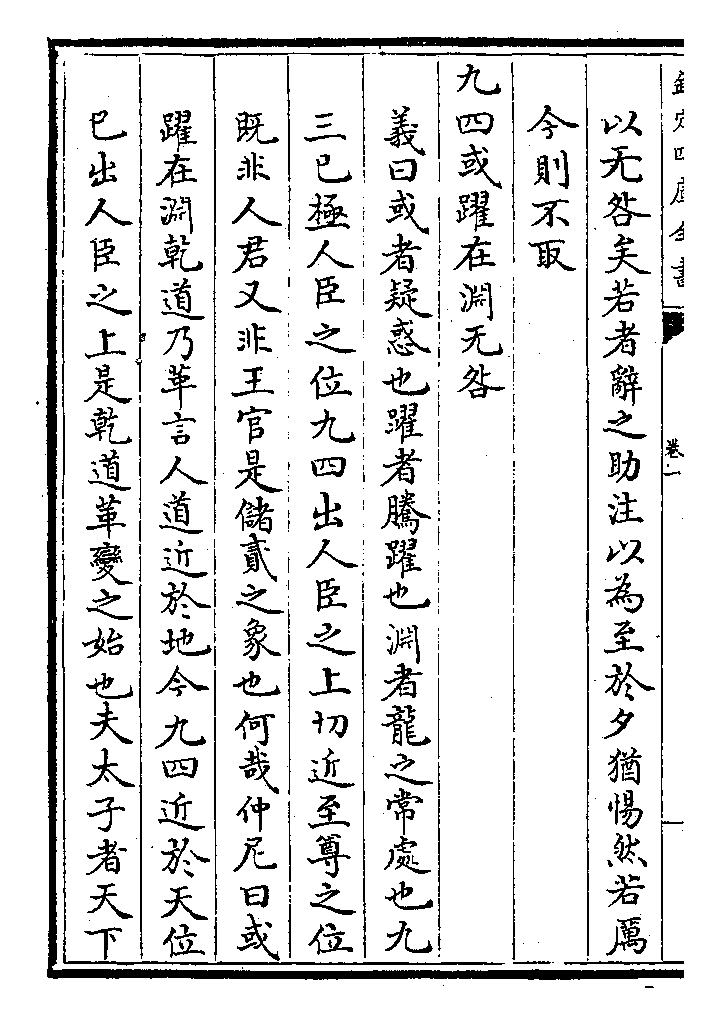 欽定四庫全書
卷一
以无咎矣若者辭之助注以為至於夕猶惕然若厲
今則不取
九四或躍在淵无咎
義曰或者疑惑也躍者騰躍也淵者龍之常處也九
三已極人臣之位九四出人臣之上切近至尊之位
既非人君又非王官是儲貳之象也何哉仲尼曰或
躍在淵乾道乃革言人道近於地今九四近於天位
已出人臣之上是乾道革變之始也夫太子者天下